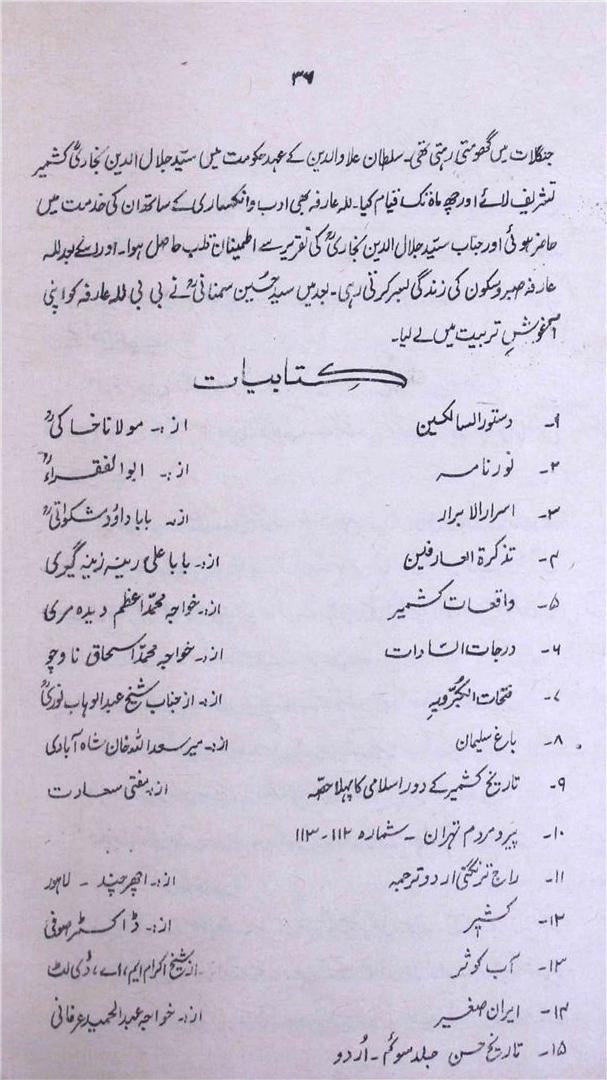 ۳۶
جنگلات میں گھومتی رہتی تھی۔ سلطان علاوالدین کے عہد حکومت میں سیّد جلال الدین بخاریؒ کشمیر
تشریف لائے اور چھ ماہ تک قیام کیا۔ للہ عارفہ بھی ادب و انکساری کے ساتھ ان کی خدمت میں
حاضر ہوئی اور جناب سیّد جلال الدین بخاریؒ کی تقریر سے اطمینان قلب حاصل ہوا۔ اور اسکے بعد للہ
عارفہ صبر و سکون کی زندگی بسر کرتی رہی۔ بعد میں سید حسین سمنانیؒ نے بی بی للہ عارفہ کو اپنی
آغوشِ تربیت میں لے لیا۔
کتابیات
۱۔ دستور السالکین از:۔ مولانا خاکیؒ
۲۔ نور نامہ از:۔ ابو الفقراءؒ
۳۔ اسرار الابرار از:۔ بابا داؤد مشکواتیؒ
۴۔ تذکرۃ العارفین از:۔ بابا علی رینہ زینہ گیری
۵۔ واقعات کشمیر از:۔ خواجہ محمّد اعظم دیدہ مری
۶۔ درجات السّادات از:۔ خواجہ محمّد اسحاق ناوچو
۷۔ فتحات الکبرٰویہ از:۔ از جناب شیخ عبد الوہاب نوریؒ
۸۔ باغ سلیمان از:۔ میر سعد اللہ خان شاہ آبادی
۹۔ تاریخ کشمیر کے دور اسلامی کا پہلا حصّہ از:۔ مفتی سعادت
۱۰۔ پیر و مردم تہران ۔ شمارہ ۱۱۲۔۱۱۳
۱۱۔ راج ترنگنی اردو ترجمہ از:۔ اچھر چند ۔ لاہور
۱۲۔ کشیر از:۔ ڈاکٹر صوفی
۱۳۔ آب کوثر از:۔ شیخ اکرام ایم، اے، ڈی لٹ
۱۴۔ ایران صغیر از:۔ خواجہ عبد الحمید عرفانی
۱۵۔ تاریخ حسن جلد سوئم ۔ اُردو